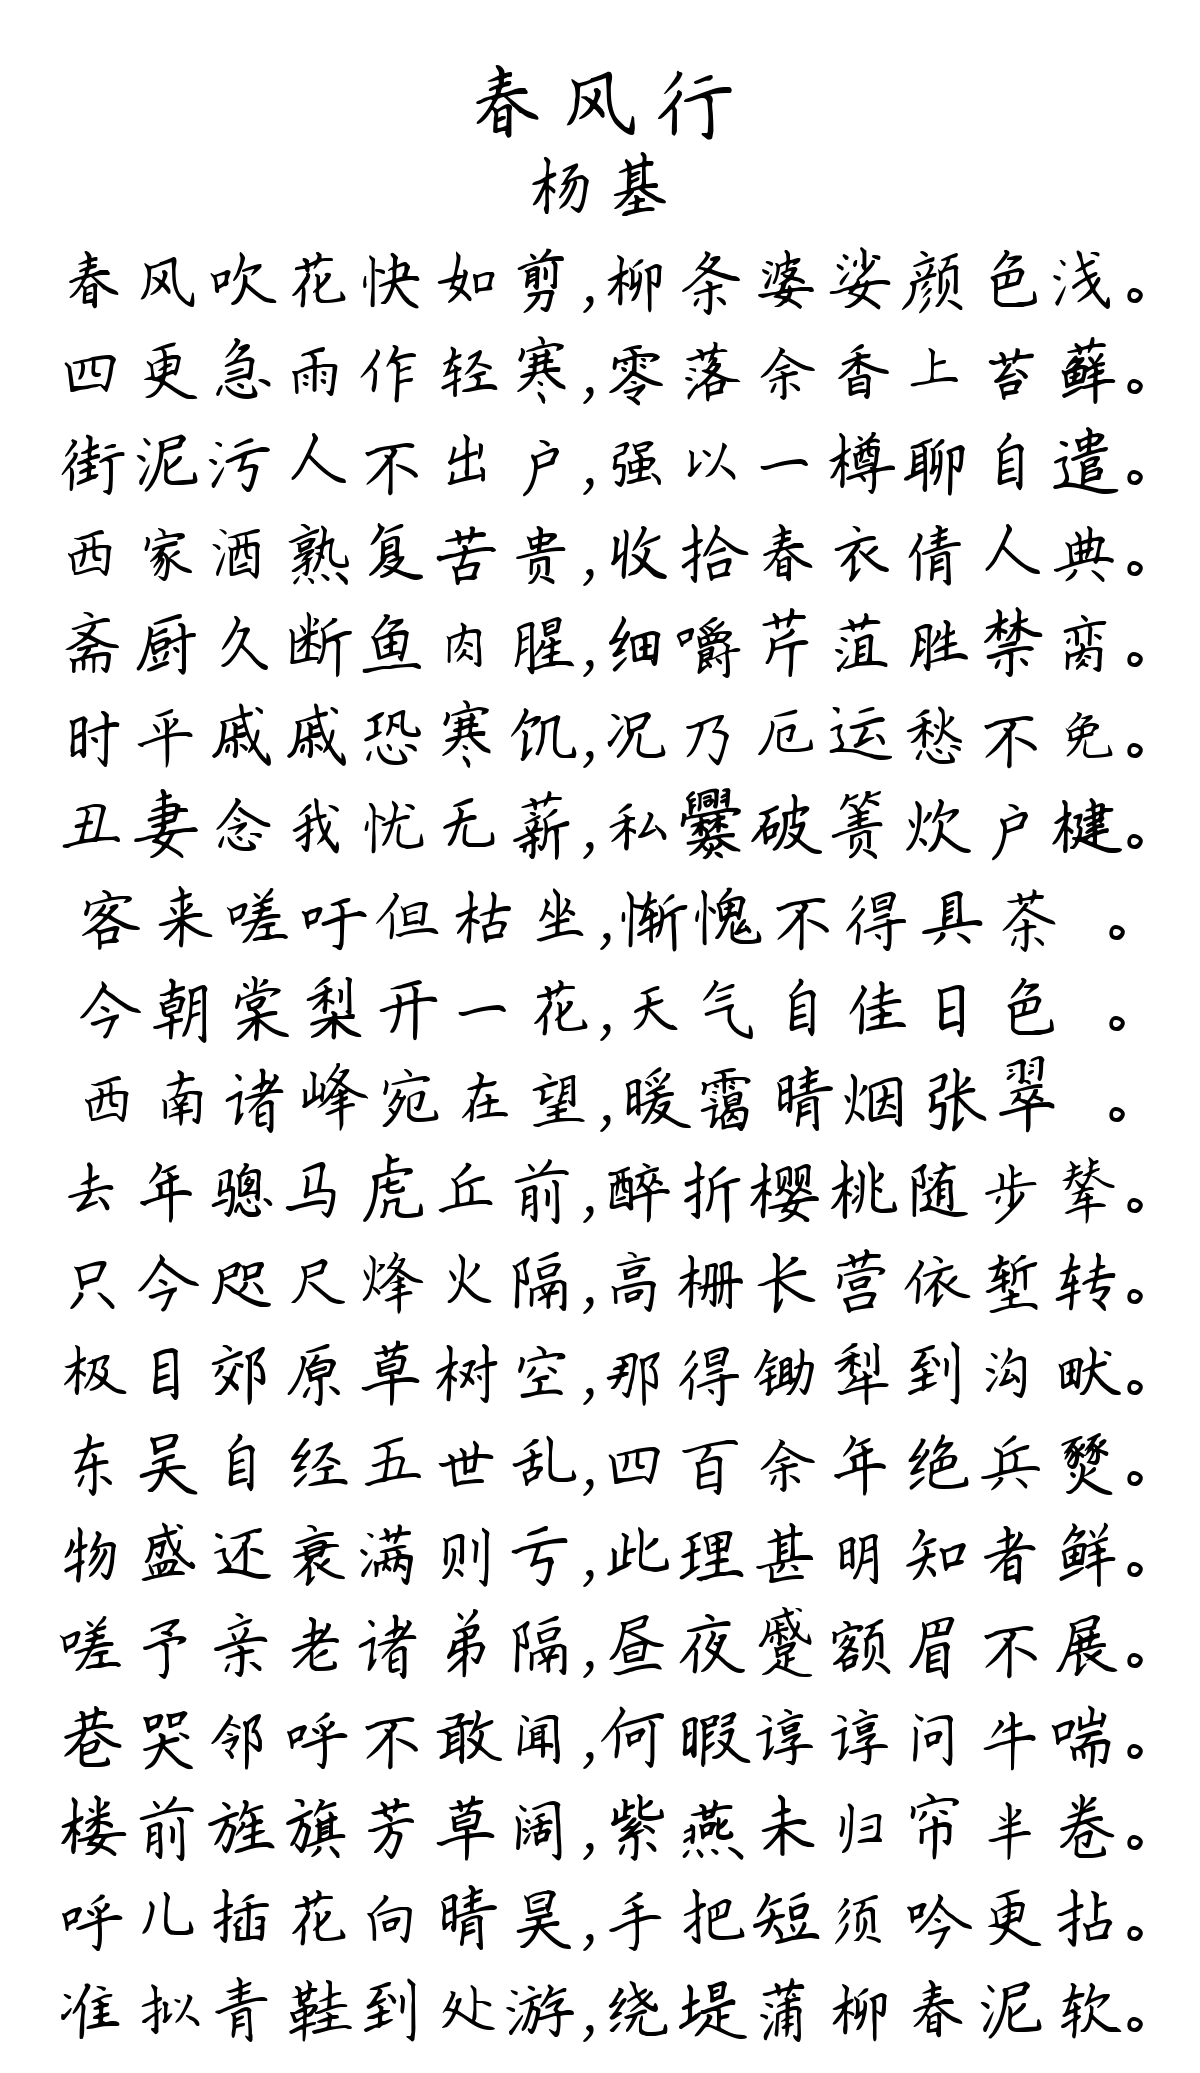 春风行
杨基
春风吹花快如剪,柳条婆娑颜色浅。
四更急雨作轻寒,零落余香上苔藓。
街泥污人不出户,强以一樽聊自遣。
西家酒熟复苦贵,收拾春衣倩人典。
斋厨久断鱼肉腥,细嚼芹菹胜禁脔。
时平戚戚恐寒饥,况乃厄运愁不免。
丑妻念我忧无薪,私爨破箦炊户楗。
客来嗟吁但枯坐,惭愧不得具茶 。
今朝棠梨开一花,天气自佳日色 。
西南诸峰宛在望,暖霭晴烟张翠 。
去年骢马虎丘前,醉折樱桃随步辇。
只今咫尺烽火隔,高栅长营依堑转。
极目郊原草树空,那得锄犁到沟畎。
东吴自经五世乱,四百余年绝兵燹。
物盛还衰满则亏,此理甚明知者鲜。
嗟予亲老诸弟隔,昼夜蹙额眉不展。
巷哭邻呼不敢闻,何暇谆谆问牛喘。
楼前旌旗芳草阔,紫燕未归帘半卷。
呼儿插花向晴昊,手把短须吟更拈。
准拟青鞋到处游,绕堤蒲柳春泥软。